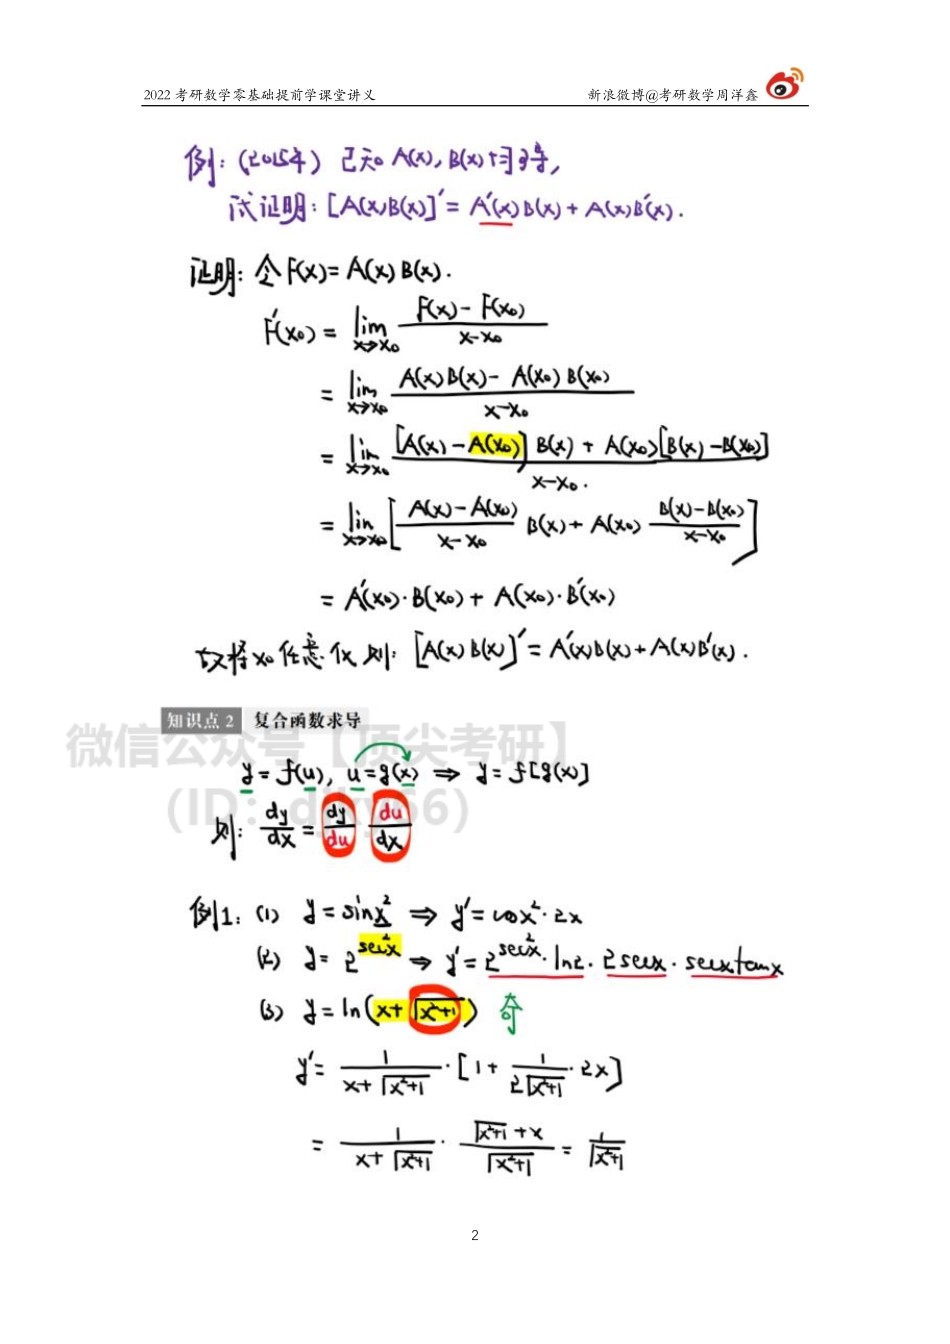 2022 考研数学零基础提前学课堂讲义 新浪微博@考研数学周洋鑫
例：(2015年) 已知 A(x), B(x)均可导,
试证明：[A(x)B(x)]′ = A′(x)B(x) + A(x)B′(x).
证明：令 F(x) = A(x)B(x).
F′(x₀) = lim_{x→x₀} (F(x) - F(x₀))/(x-x₀)
= lim_{x→x₀} (A(x)B(x) - A(x₀)B(x₀))/(x-x₀)
= lim_{x→x₀} ([A(x) - A(x₀)]B(x) + A(x₀)[B(x) - B(x₀)])/(x-x₀).
= lim_{x→x₀} [(A(x) - A(x₀))/(x-x₀) B(x) + A(x₀) (B(x) - B(x₀))/(x-x₀)]
= A′(x₀)·B(x₀) + A(x₀)·B′(x₀)
故将x₀任意化 则：[A(x)B(x)]′ = A′(x)B(x) + A(x)B′(x).
知识点 2 复合函数求导
微信公众号【顶尖考研】
y = f(u), u = g(x) ⇒ y = f[g(x)]
(ID：djky66)
则：dy/dx = dy/du du/dx
例1：(1) y = sinx² ⇒ y′ = cosx²·2x
(2) y = 2^{sec²x} ⇒ y′ = 2^{sec²x}·ln2·2secx·secxtanx
(3) y = ln(x+√(x²+1)) 奇
y′ = 1/(x+√(x²+1))·[1 + 1/(2√(x²+1))·2x]
= 1/(x+√(x²+1))·(√(x²+1)+x)/√(x²+1) = 1/√(x²+1)
2